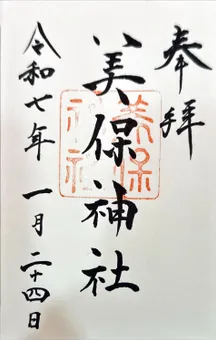 奉拝
美保神社
美保神社
令和七年 一月二十四日